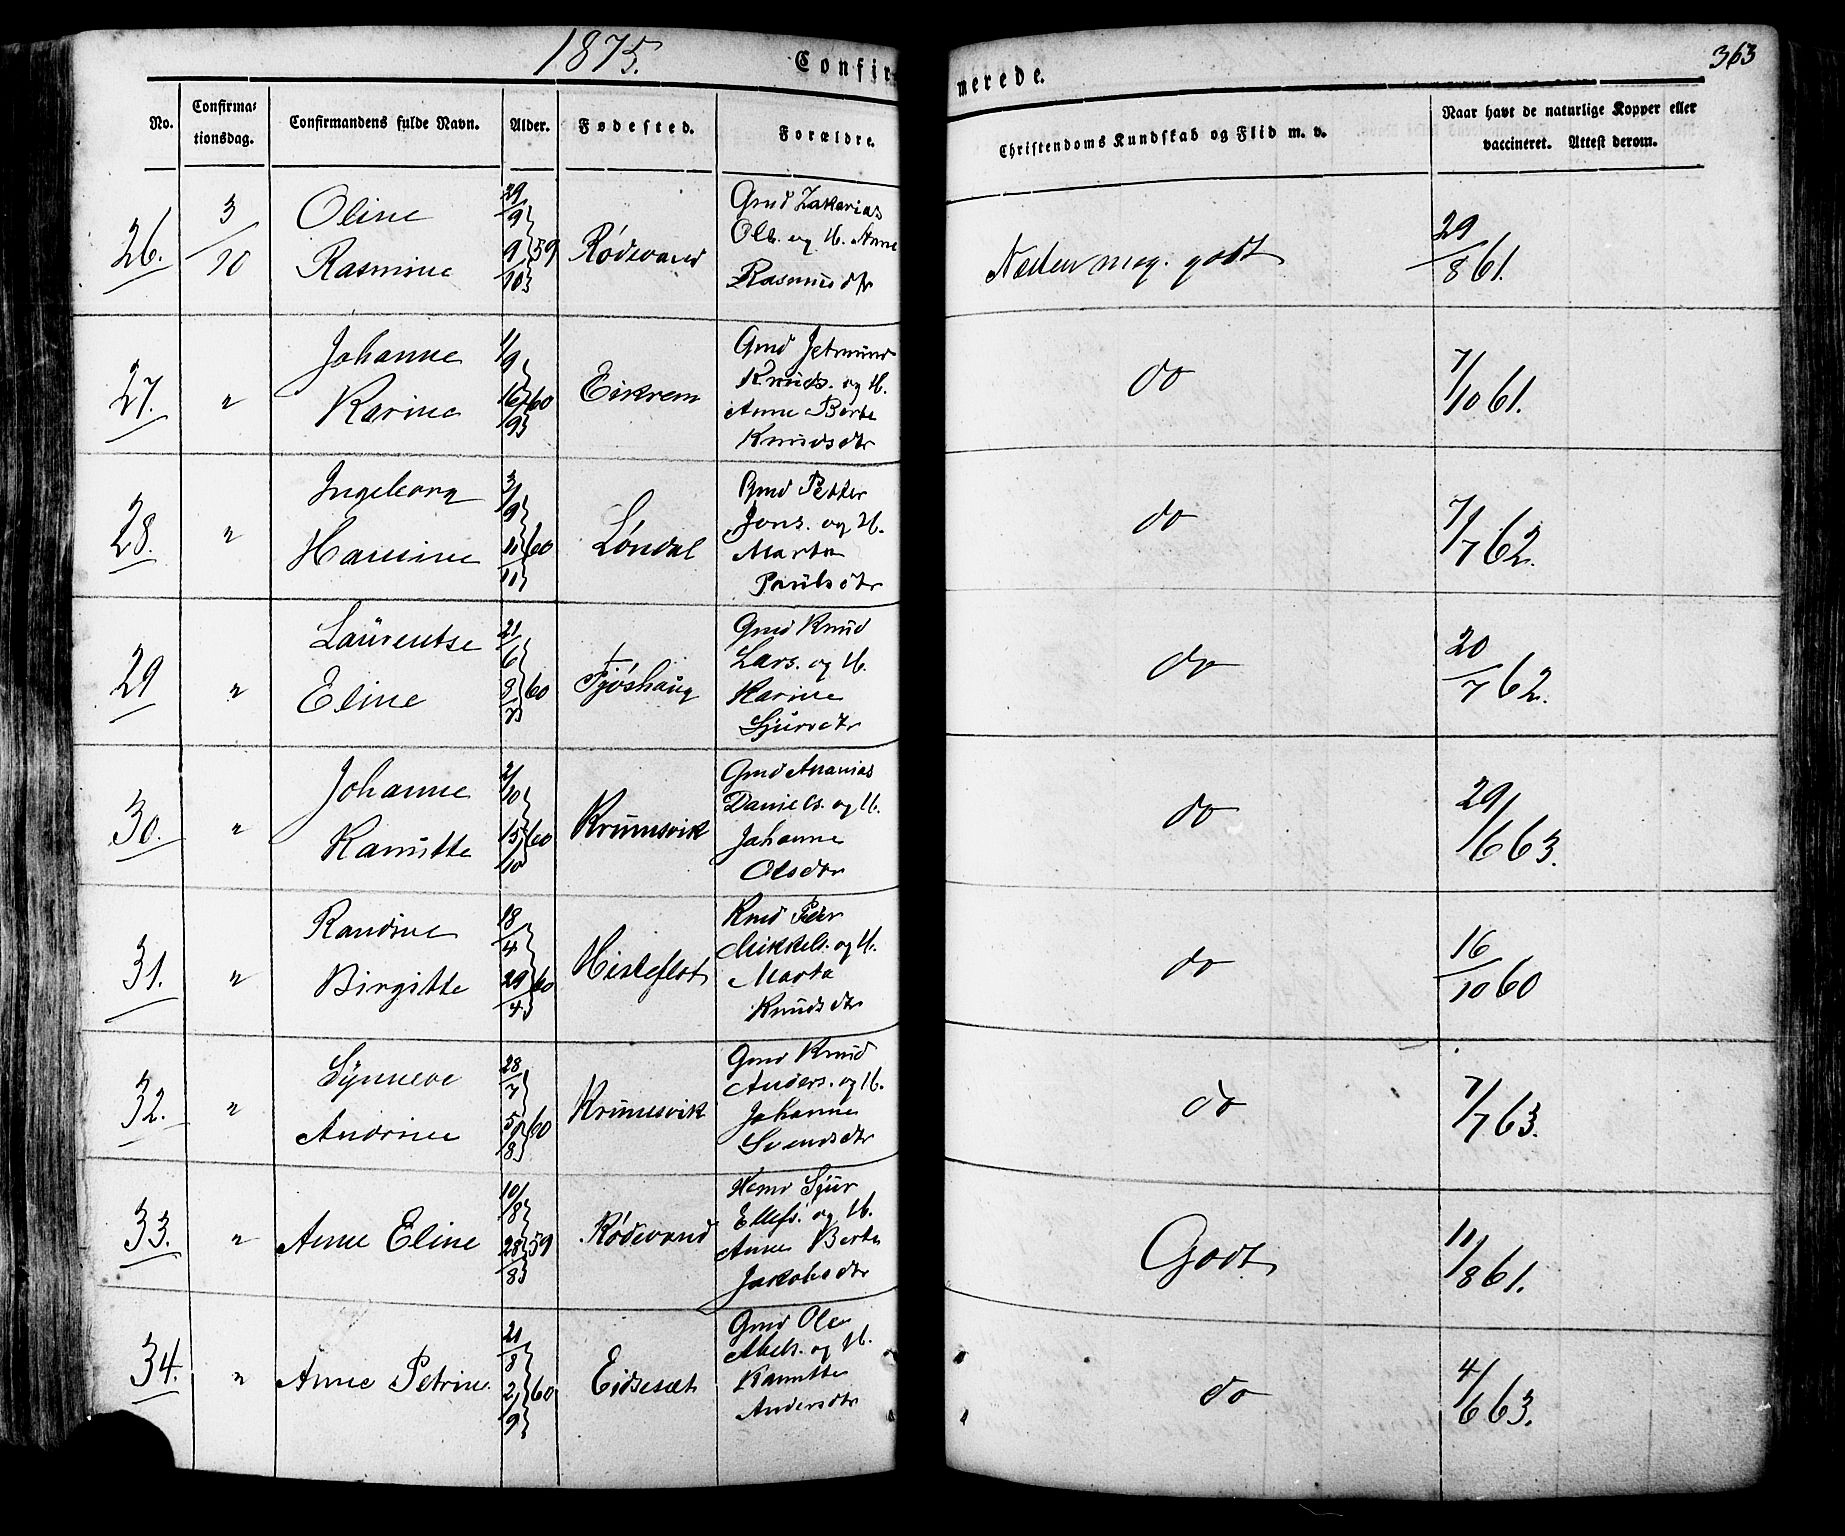 1875.
Confirmerede.
363
No.
Confirmationsdag.
Confirmandens fulde Navn.
Alder.
Fødested.
Forældre.
Christendoms Kundskab og Flid m. v.
Naar havt de naturlige Kopper eller
vaccineret. Attest derom.
26. 3/10 Oline Rasmine 29/9 9/10 59 Rødsvand
Gmd Zakarias
Ols. og H. Anne
Rasmusdtr
Næsten meg. godt 29/8 61.
27. " Johanne Karine 1/9 16/9 60 Eikrem
Gmd Jetmund
Knuds. og H.
Anne Berte
Knudsdtr
do 7/10 61.
28. " Ingeborg Hansine 3/9 11/11 60 Løndal
Gmd Petter
Jons. og H.
Marta
Paulsdtr
do 7/7 62.
29 " Laurentse Eline 21/6 8/7 60 Fjøshaug
Gmd Knud
Lars. og H.
Karine
Sjursdtr
do 20/7 62.
30. " Johanne Kanutte 2/10 15/10 60 Krumsvik
Gmd Ananias
Daniels. og H.
Johanne
Olsdtr
do 29/6 63.
31. " Randine Birgitte 18/4 29/4 60 Hisleflot
Peder
Mikkels. og H.
Marta
Knudsdtr
do 16/10 60
32. " Synneve Andrine 28/7 5/8 60 Krumsvik
Gmd Knud
Anders. og H.
Johanne
Svendsdtr
do 7/7 63.
33. " Anne Eline 10/8 28/8 59 Rødsvand
Sjur
Ellefs. og H.
Anne Berte
Jakobsdtr
Godt 11/8 61.
34. " Anne Petrine 21/8 2/9 60 Eidsesæt
Gmd Ole
Abels. og H.
Kanutte
Andersdtr
do 4/6 63.